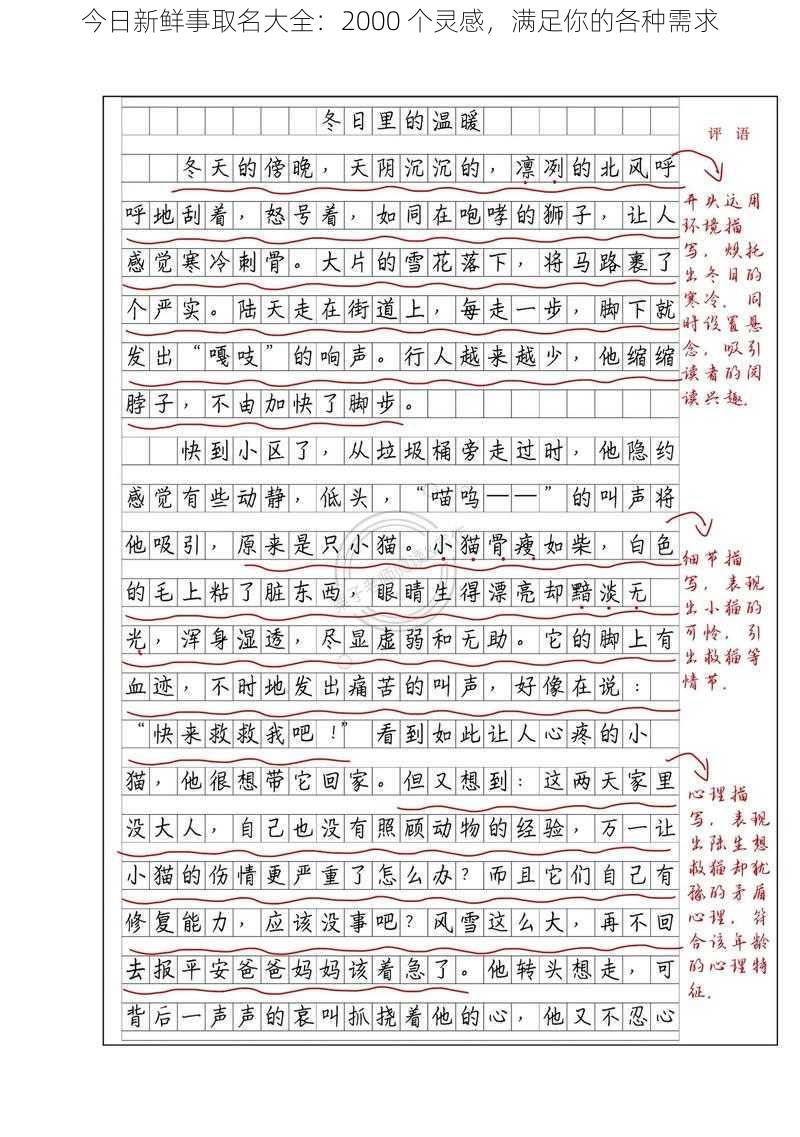 今日新鲜事取名大全：2000 个灵感，满足你的各种需求
冬日里的温暖
冬天的傍晚，天阴沉沉的，凛冽的北风呼
呼地刮着，怒号着，如同在咆哮的狮子，让人
感觉寒冷刺骨。大片的雪花落下，将马路裹了
个严实。陆天走在街道上，每走一步，脚下就
发出“嘎吱”的响声。行人越来越少，他缩缩
脖子，不由加快了脚步。
快到小区了，从垃圾桶旁走过时，他隐约
感觉有些动静，低头，“喵呜——”的叫声将
他吸引，原来是只小猫。小猫骨瘦如柴，白色
的毛上粘了脏东西，眼睛生得漂亮却黯淡无
光，浑身湿透，尽显虚弱和无助。它的脚上有
血迹，不时地发出痛苦的叫声，好像在说：
“快来救救我吧！”看到如此让人心疼的小
猫，他很想带它回家。但又想到：这两天家里
没大人，自己也没有照顾动物的经验，万一让
小猫的伤情更严重了怎么办？而且它们自己有
修复能力，应该没事吧？风雪这么大，再不回
去报平安爸爸妈妈该着急了。他转头想走，可
背后一声声的哀叫抓挠着他的心，他又不忍心
评语
开头运用
环境描
写，烘托
出冬日的
寒冷，同
时设置悬
念，吸引
读者的阅
读兴趣。
细节描
写，表现
出小猫的
可怜，引
出救猫等
情节。
心理描
写，表现
出陆生想
救猫却犹
豫的矛盾
心理，符
合该年龄
的心理特
征。